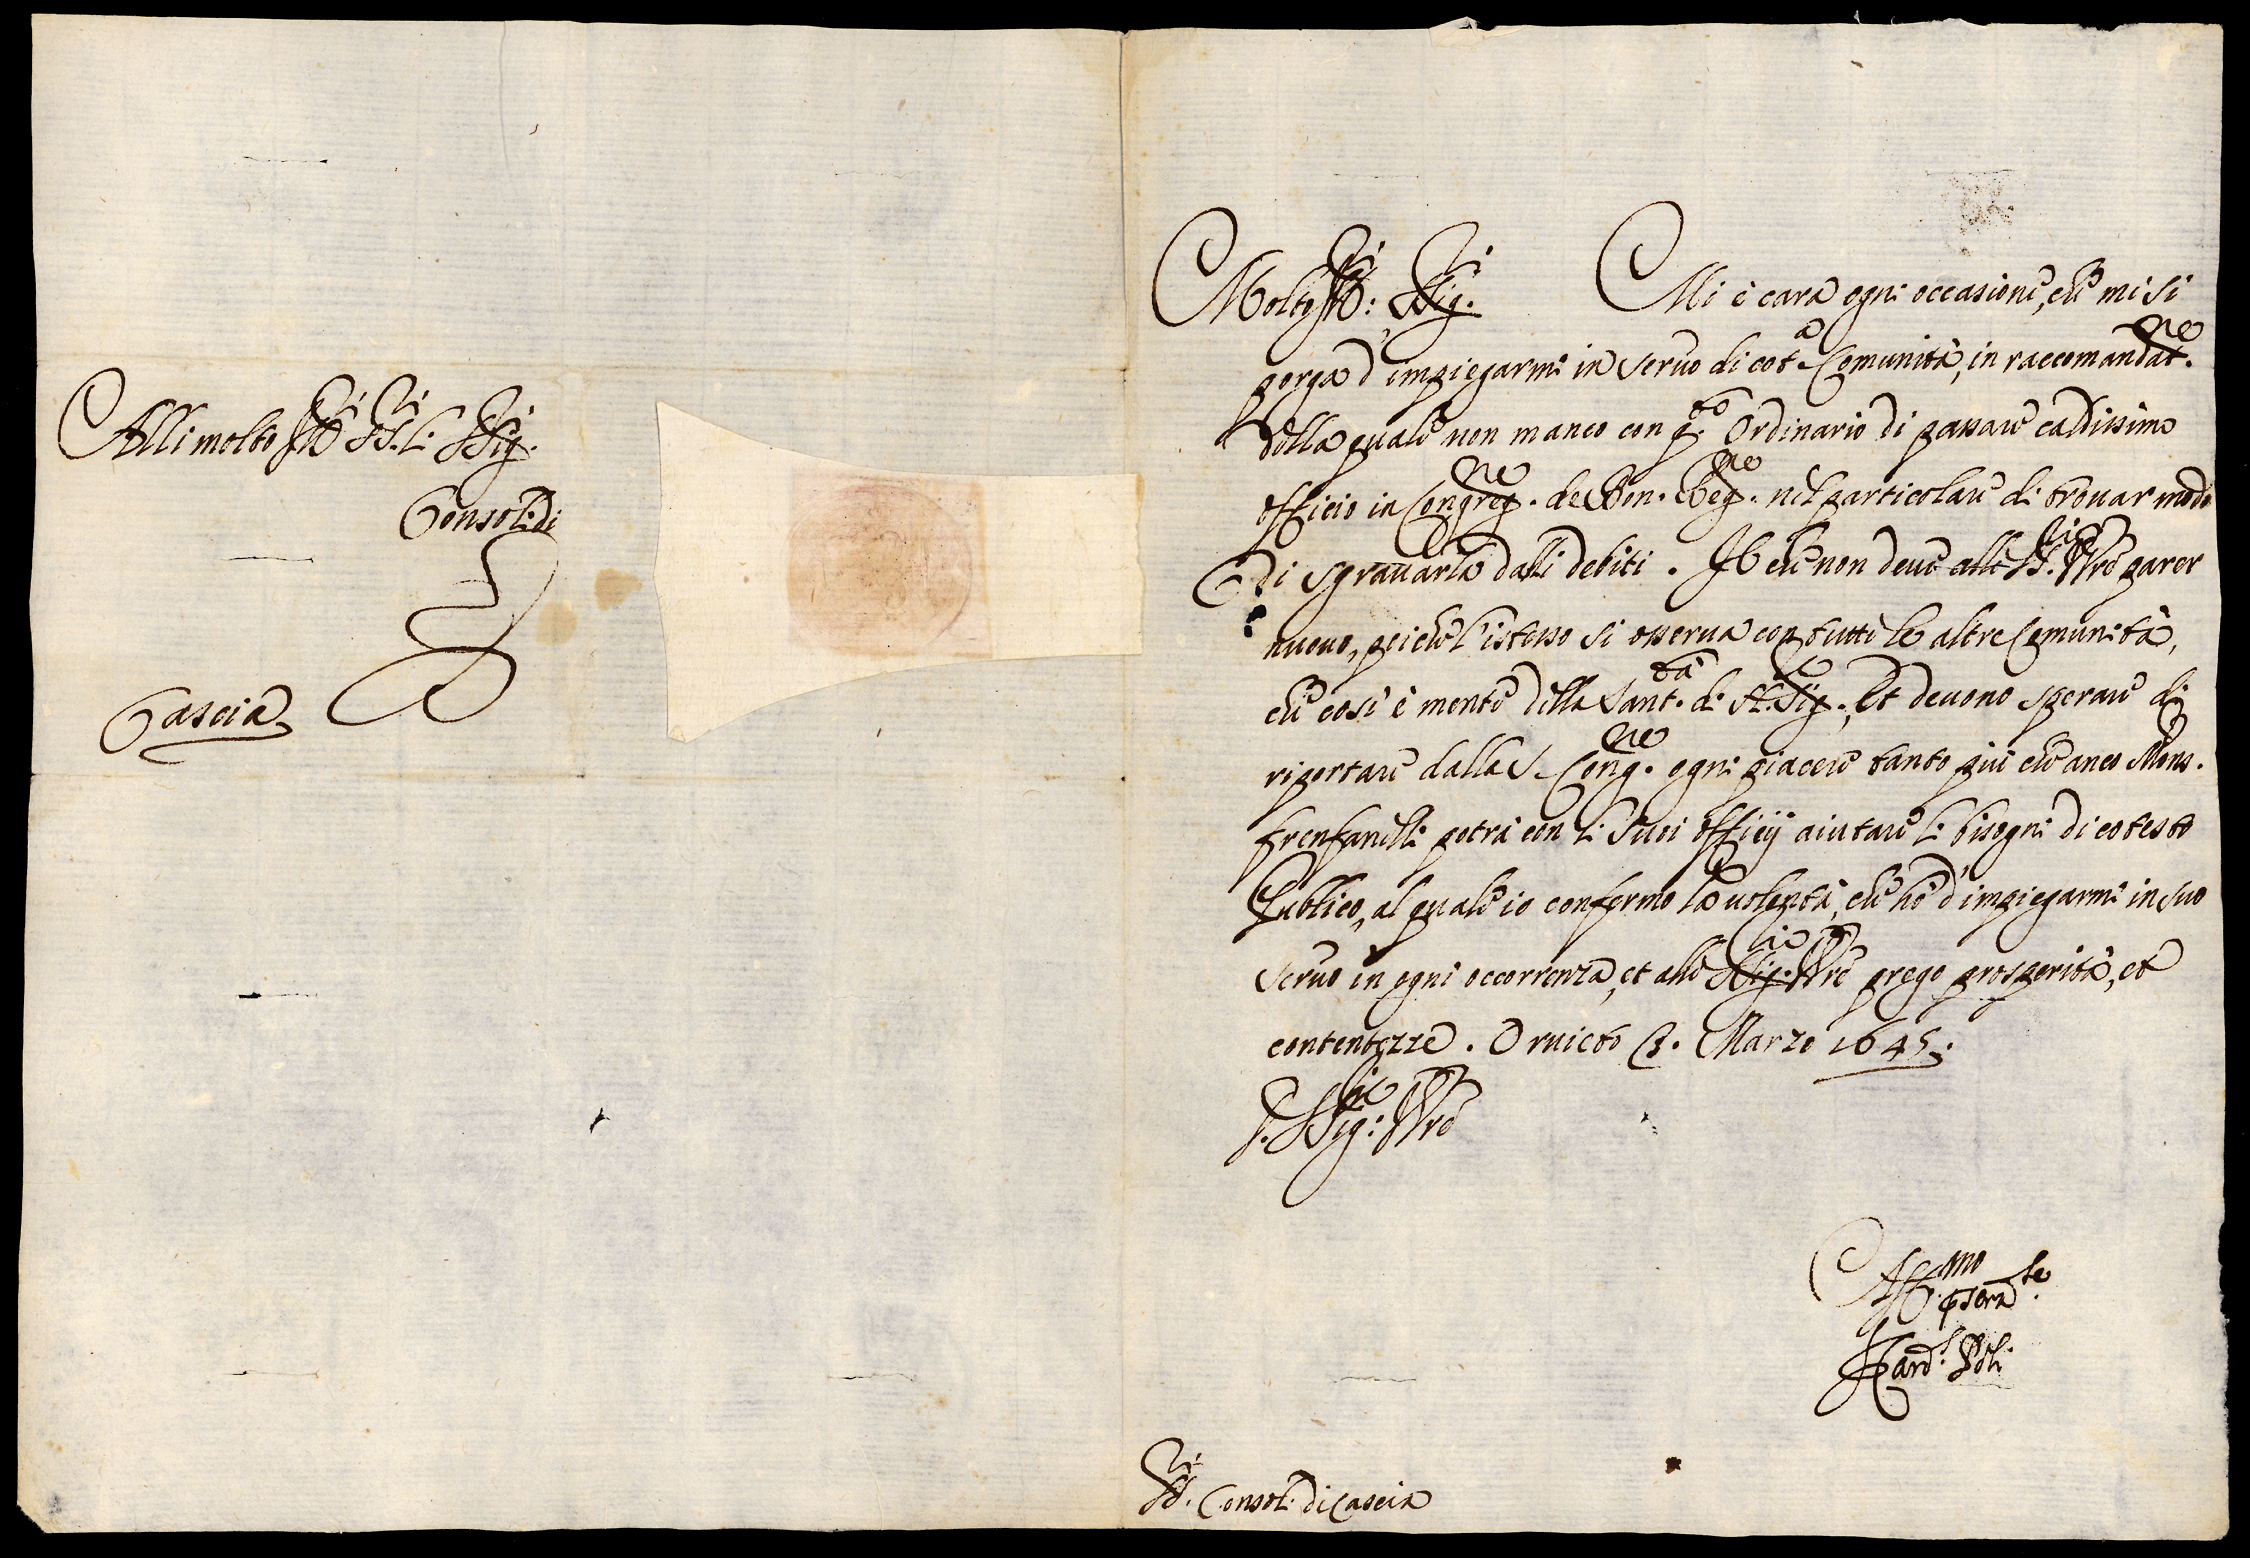 Alli molto Ill.ri SS.ri li SSig.ri
Consoli di
Cascia
Molto Ill.ri SSig.ri Mi è cara ogni occasione, che mi si
porga d'impiegarmi in seruo di cot.a Comunità, in raccomandat.ne
della quale non manco con q.to Ordinario di passare caldissimo
officio in Congreg.ne de Bon. Reg.ne nel particolare di trouar modo
di sgrauarla dalli debiti. Il che non deue alle SS.rie Vre parer
nuouo, poiche l'istesso si osserua con tutte le altre Comunità,
che così è mente della Sant.tà di N. Sig.re, Et deuono sperare di
riportare dalla S. Cong.ne ogni piacere tanto più che anco Mons.
frenfanelli potrà con li suoi officij aiutare li bisogni di cotesto
Publico, al quale io confermo la uolontà, che hò d'impiegarmi in suo
seruo in ogni occorrenza, et alle SSig.rie Vre prego prosperità, et
contentezze. Oruieto 3. Marzo 1645.
D. SSig.rie Vre
Aff.mo
Card.l Poli
SS.ri Consoli di Cascia